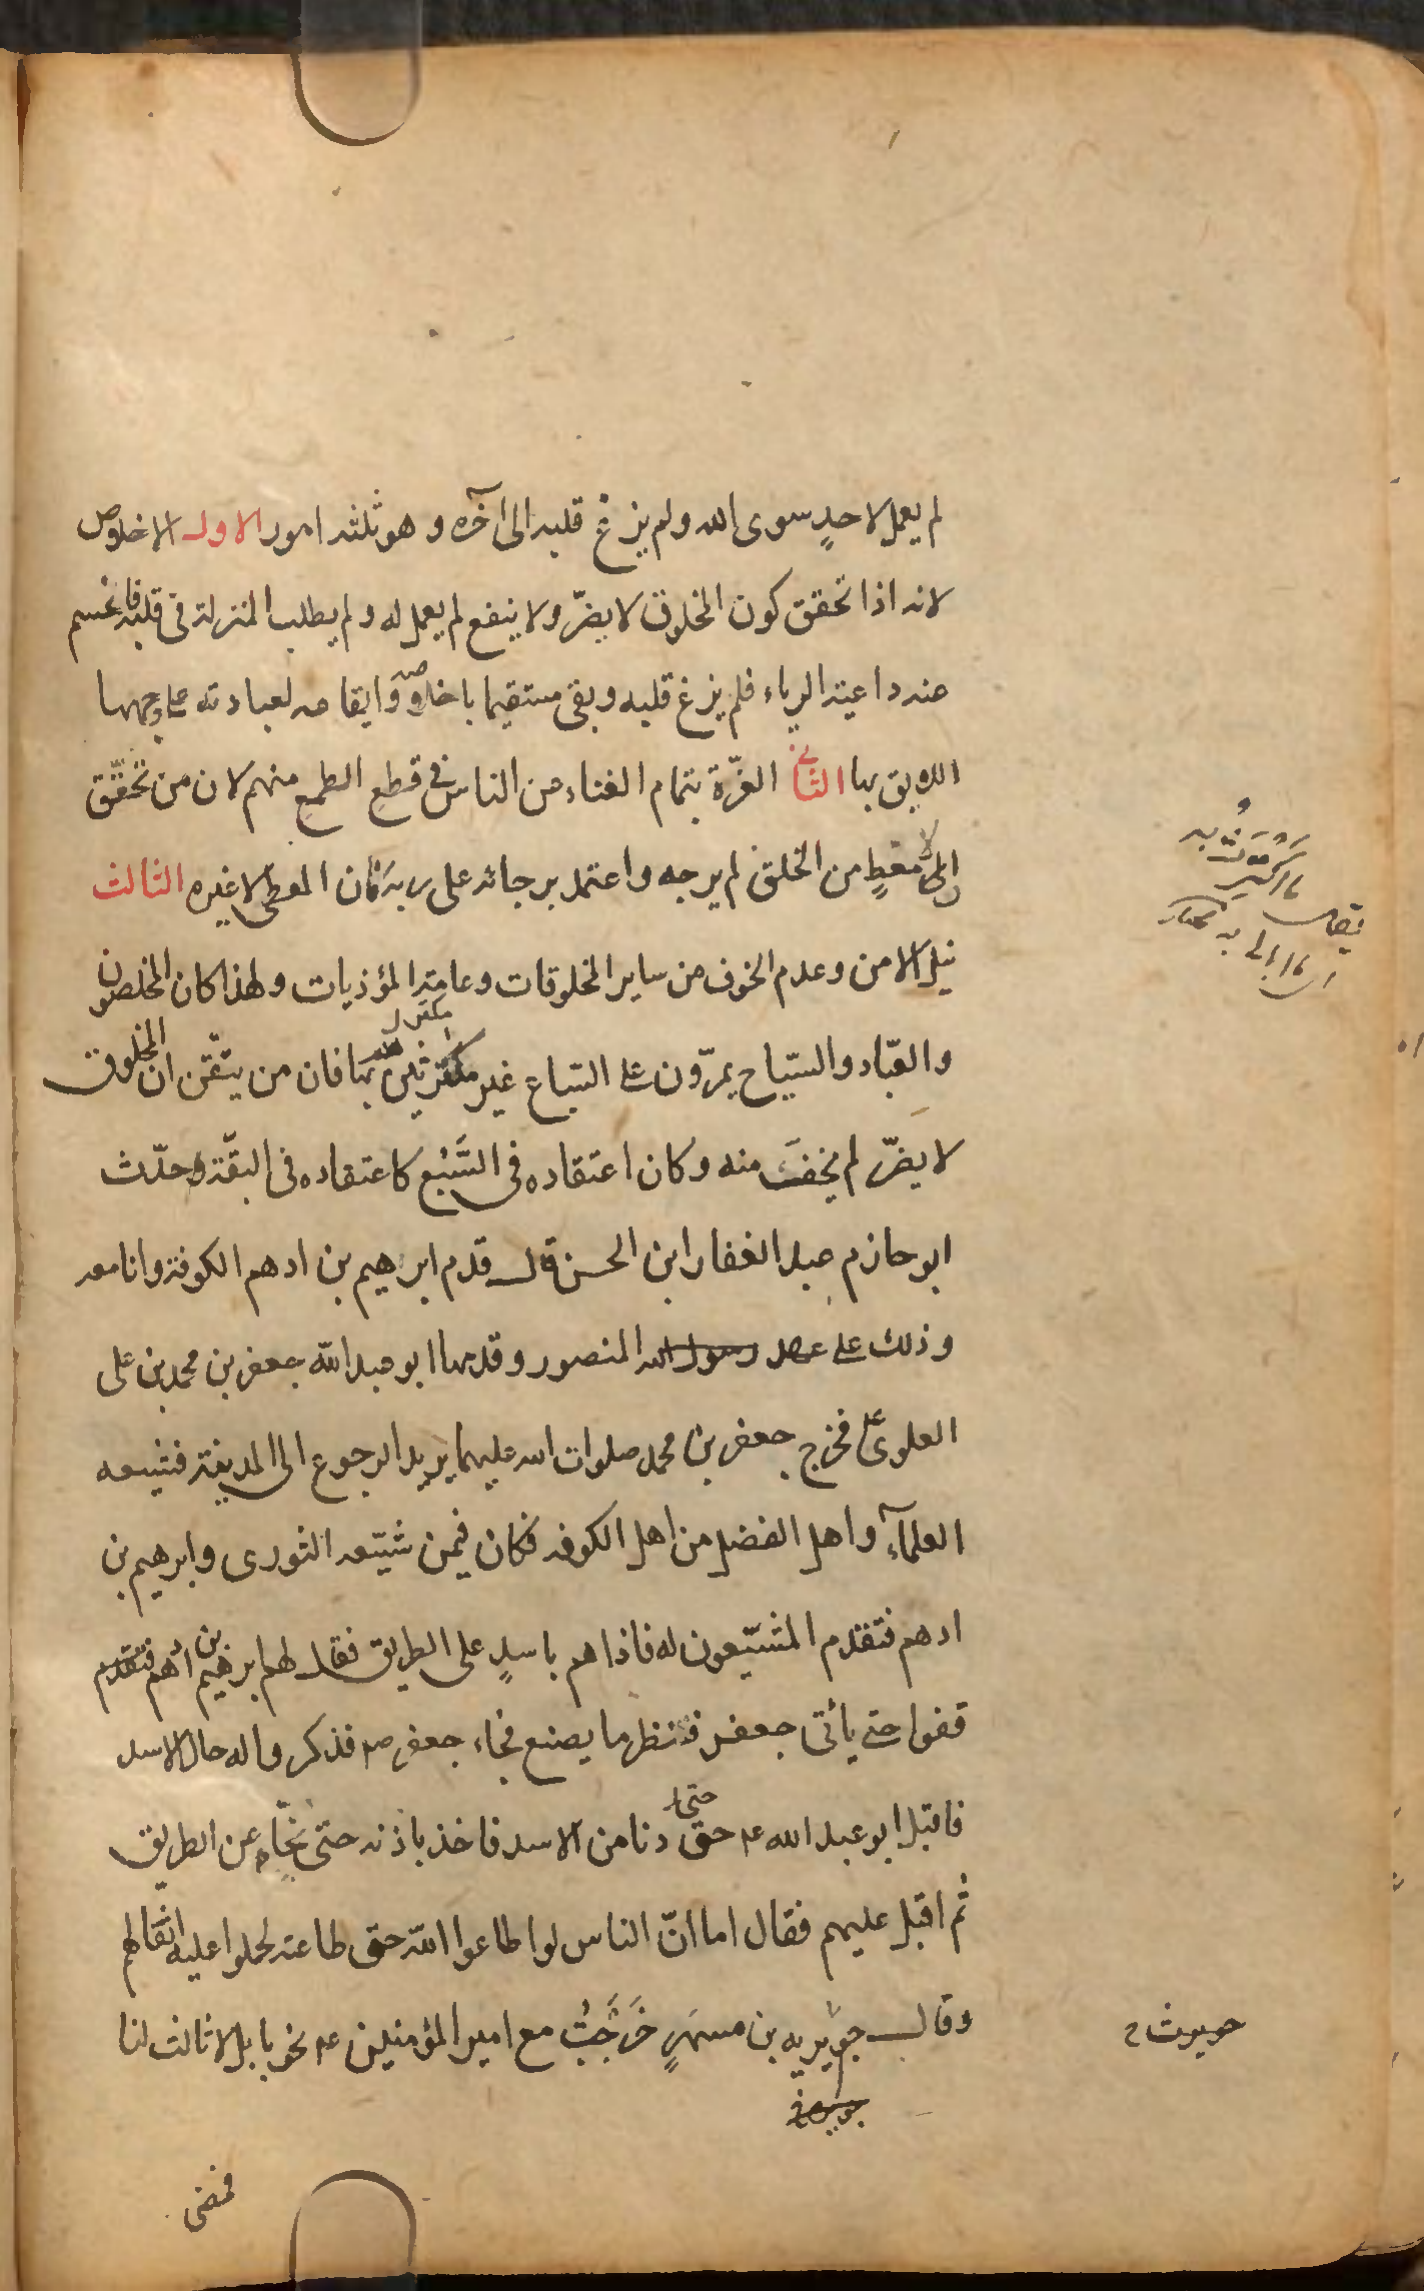 لم يعمل لاحدٍ سوى الله ولم يزغ قلبه الى آخره و هو ثلثه امور الاول الاخلاص
لانه اذا تحقق كون المخلوق لا يضرّ ولا ينفع لم يعمل له ولم يطلب المنزلة فى قلبه فانحسم
عنه داعية الرياء فلم يزغ قلبه وبقى مستقيما باخلاصه وايقاعه لعبادته على وجهها
اللايق بها الثانى العزّة بتمام الغناء من الناس فى قطع الطمع منهم لان من تحقّق
ان لا معطٍ من الخلق لم يرجه واعتمد برجائه على ربه فان المعطى لا غيره الثالث
نيل الامن وعدم الخوف من ساير المخلوقات وعامة المؤذيات ولهذا كان المخلصون
والعبّاد والسيّاح يمرّون على السباع غير مكترثين بها فان من يتقّن ان المخلوق
لا يضرّ لم يخف منه وكان اعتقاده فى السَّبُع كاعتقاده فى البقّة وحدّث
ابو حازم عبد الغفار ابن الحسن قال قدم ابرهيم بن ادهم الكوفة وانا معه
وذلك على عهد رسول الله المنصور وقدمها ابو عبد الله جعفر بن محمد بن على
العلوى فخرج جعفر بن محمد صلوات الله عليهما يريد الرجوع الى المدينة فشيعه
العلمآء واهل الفضل من اهل الكوفه فكان فيمن شيّعه الثورى وابرهيم بن
ادهم فتقدم المشيّعون له فاذا هم باسدٍ على الطريق فقال لهم ابرهيم بن ادهم فتقدم
قفوا حتى يأتى جعفر فننظر ما يصنع فجاء جعفر ع فذكروا له حال الاسد
فاقبل ابو عبد الله ع حتى دنا من الاسد فاخذ باذنه حتى نحّاه عن الطريق
ثم اقبل عليهم فقال اما انّ الناس لو اطاعوا الله حق طاعته لحملوا عليه اثقالهم
وقال جويريه بن مسهرٍ خَرَجْتُ مع امير المؤمنين ع نحو بابل لا ثالث لنا
فمضى